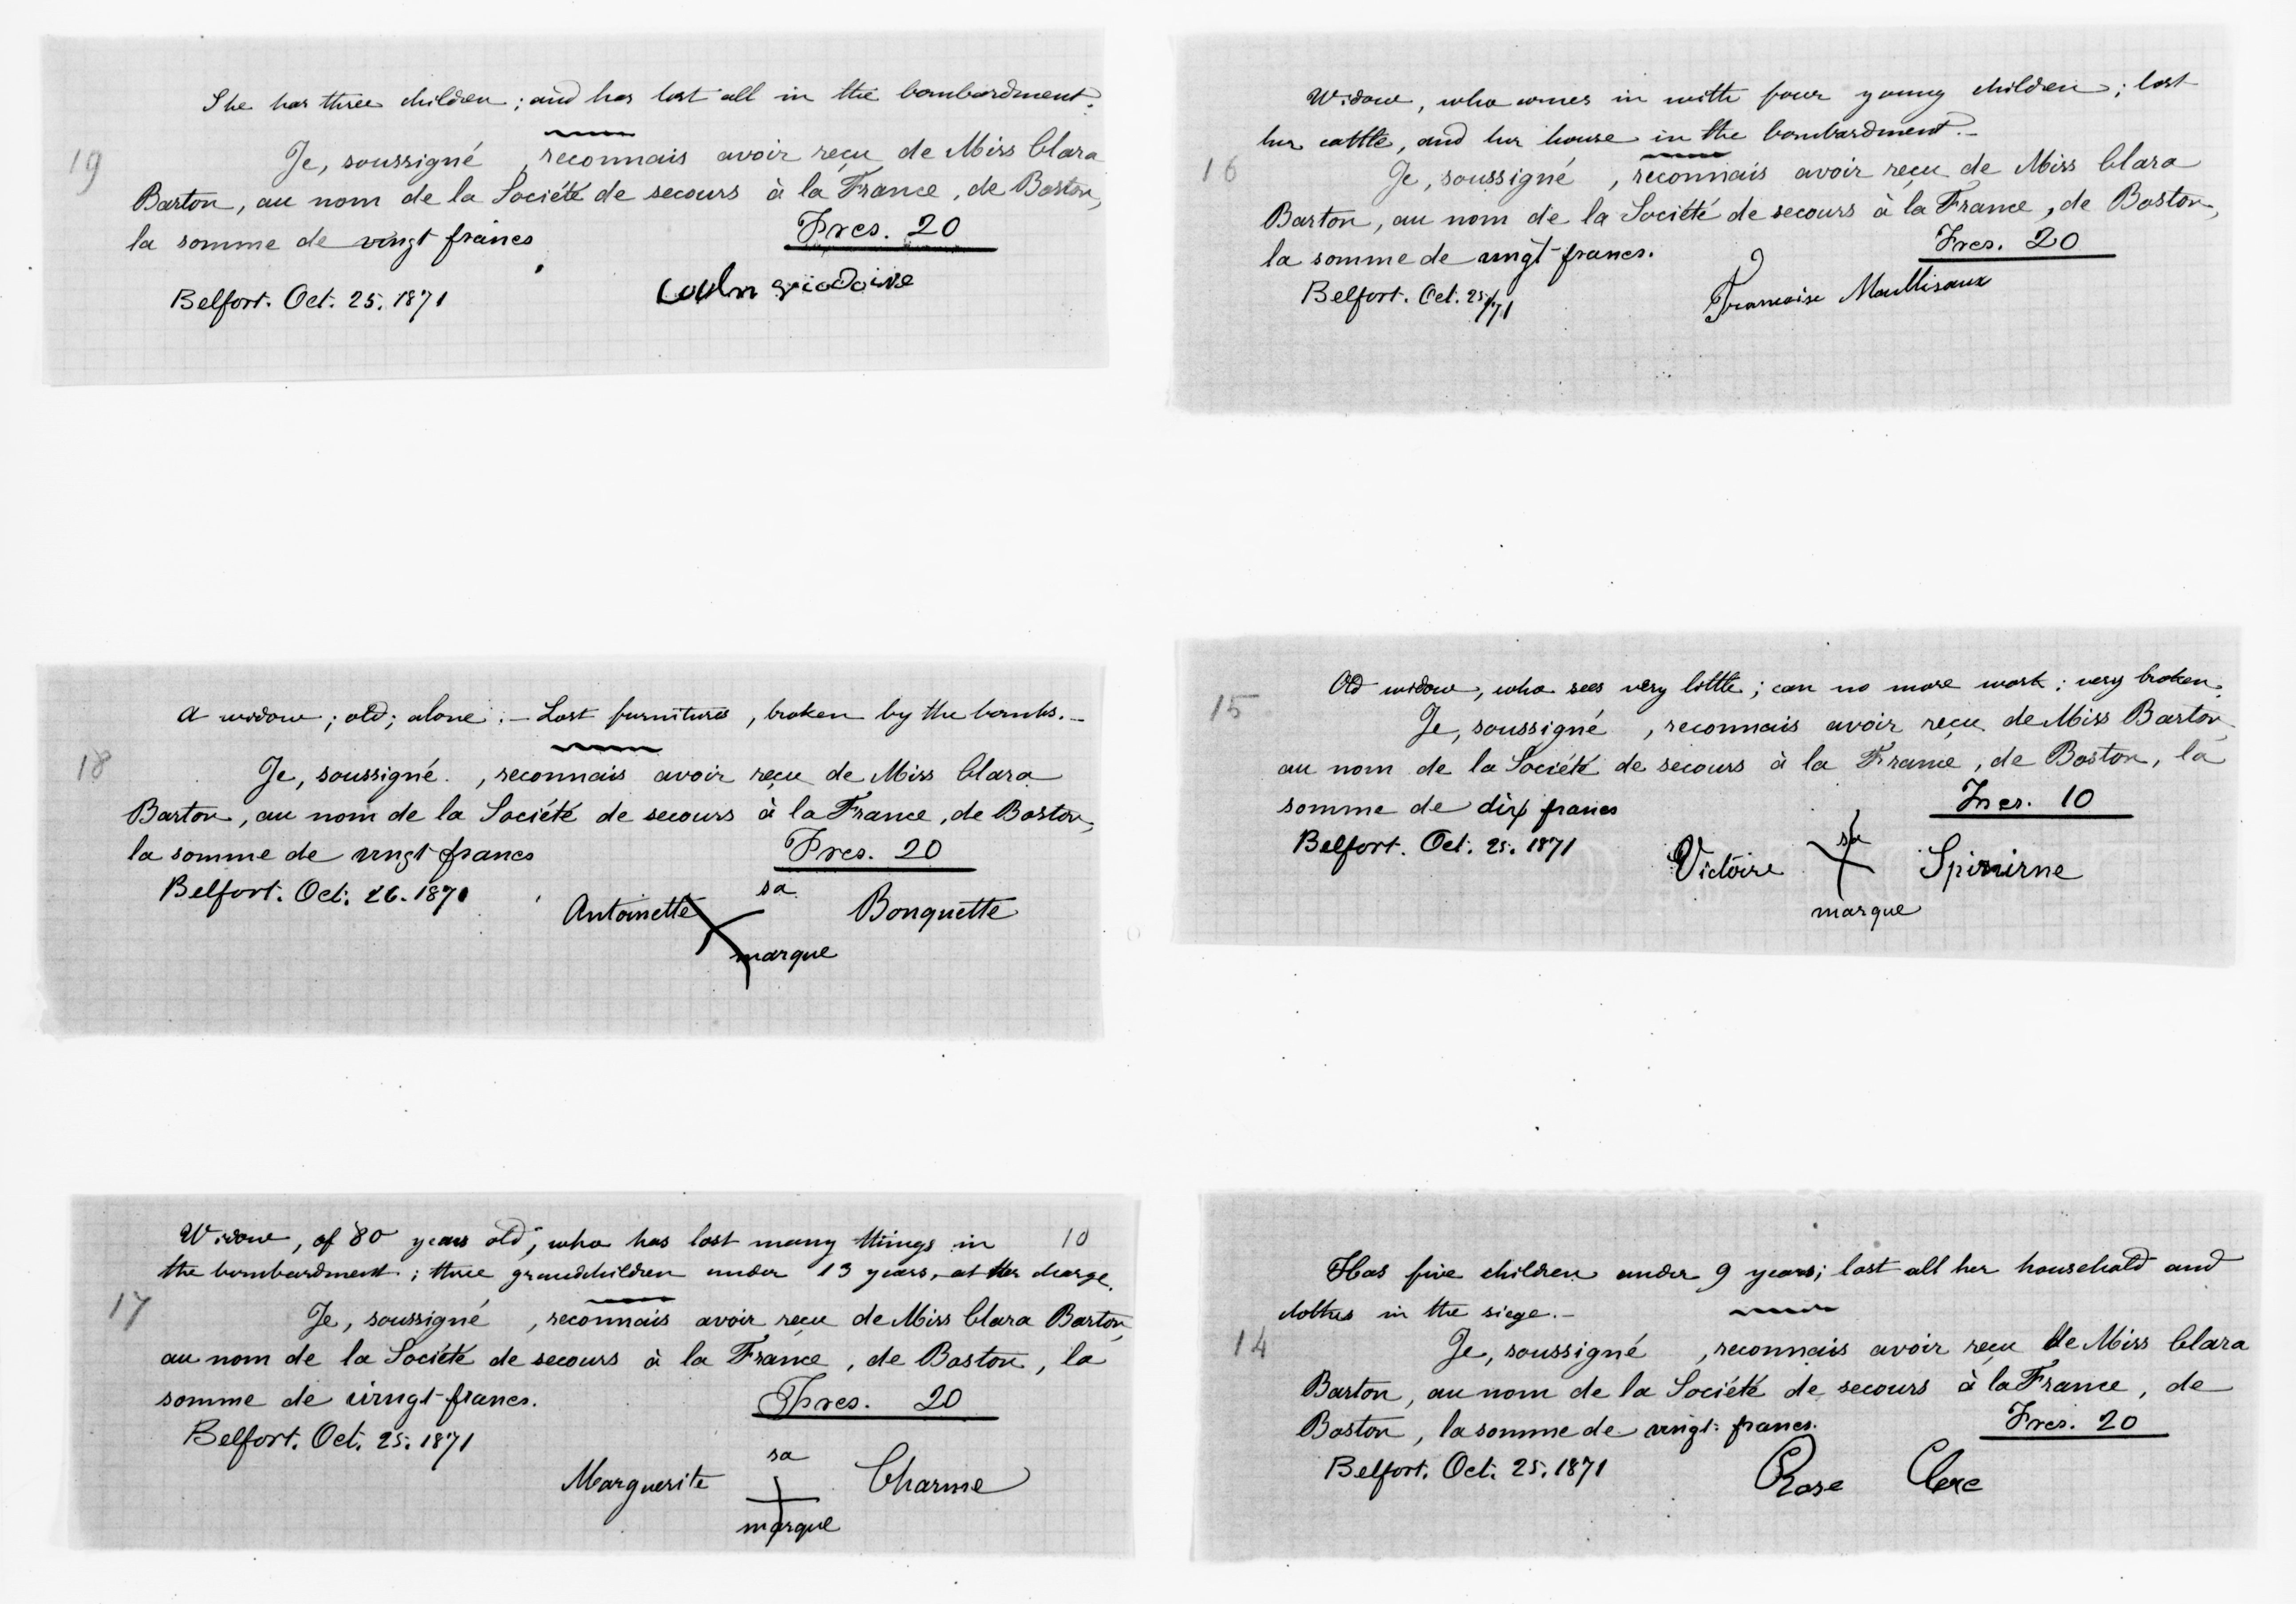 She has three children; and has lost all in the bombardment.
19
Je, soussigné , reconnais avoir reçu de Miss Clara
Barton, au nom de la Société de secours à la France, de Boston,
la somme de vingt francs
Frcs. 20
Belfort. Oct. 25. 1871
A widow; old; alone; - Lost furnitures, broken by the bombs. -
18
Je, soussigné , reconnais avoir reçu de Miss Clara
Barton, au nom de la Société de secours à la France, de Boston,
la somme de vingt francs
Frcs. 20
Belfort. Oct. 26. 1871
Antoinette sa Bonquette
marque
Widow, of 80 years old; who has lost many things in 10
the bombardment; three grandchildren under 13 years, at her charge.
17
Je, soussigné , reconnais avoir reçu de Miss Clara Barton,
au nom de la Société de secours à la France, de Boston, la
somme de vingt francs.
Frcs. 20
Belfort. Oct. 25. 1871
Marguerite sa Charme
marque
Widow, who comes in with four young children; lost
her cattle, and her house in the bombardment. -
16
Je, soussigné , reconnais avoir reçu de Miss Clara
Barton, au nom de la Société de secours à la France, de Boston,
la somme de vingt francs.
Frcs. 20
Belfort. Oct. 25/71
Francoise
Old widow, who sees very little; can no more work; very broken.
15
Je, soussigné , reconnais avoir reçu de Miss Barton,
au nom de la Société de secours à la France, de Boston, la
somme de dix francs
Frcs. 10
Belfort. Oct. 25. 1871
Victoire sa
marque
Has five children under 9 years; lost all her household and
clothes in the siege. -
14
Je, soussigné , reconnais avoir reçu de Miss Clara
Barton, au nom de la Société de secours à la France, de
Boston, la somme de vingt francs.
Frcs. 20
Belfort. Oct. 25. 1871
Rose Clerc